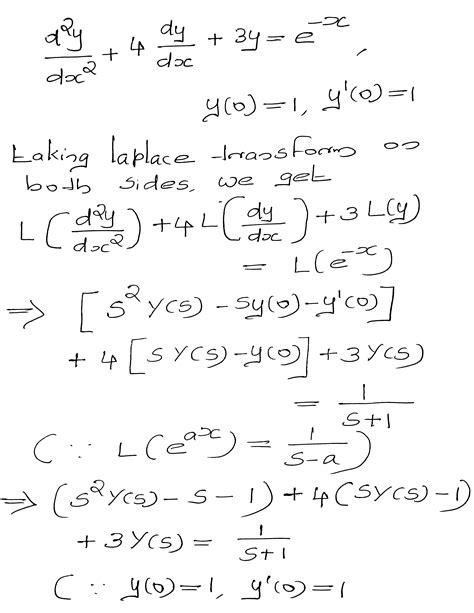 d²y/dx² + 4 dy/dx + 3y = e^-x,
y(0)=1, y'(0)=1
taking laplace transform on
both sides, we get
L(d²y/dx²) + 4L(dy/dx) + 3L(y)
= L(e^-x)
⇒ [s²Y(s) - sy(0) - y'(0)]
+ 4[sY(s) - y(0)] + 3Y(s)
= 1/(s+1)
(∵ L(e^ax) = 1/(s-a))
⇒ (s²Y(s) - s - 1) + 4(sY(s) - 1)
+ 3Y(s) = 1/(s+1)
(∵ y(0)=1, y'(0)=1